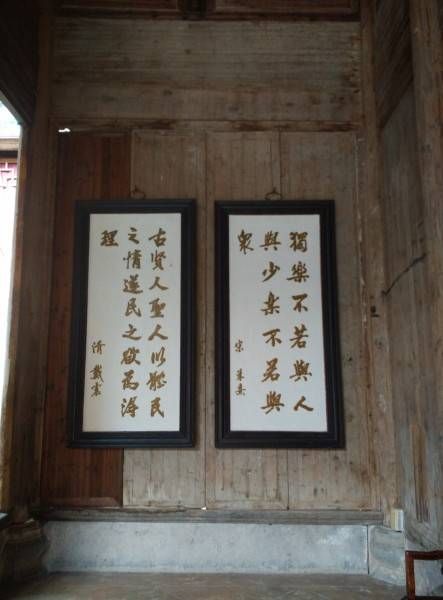 獨樂不若與人
與少樂不若與
衆
宋 朱熹
古贤人聖人以體民
之情遂民之欲為得
理
清 戴震